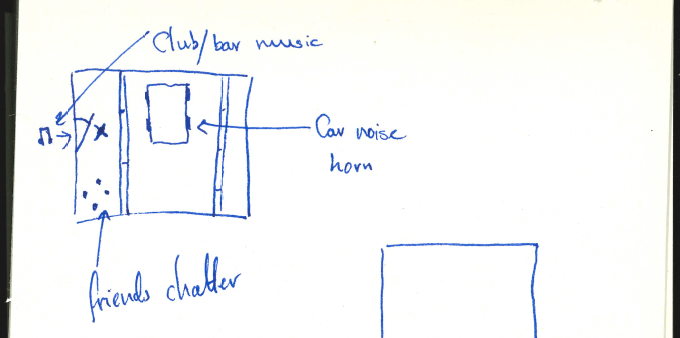 Club/bar music
Car noise
horn
friends chatter